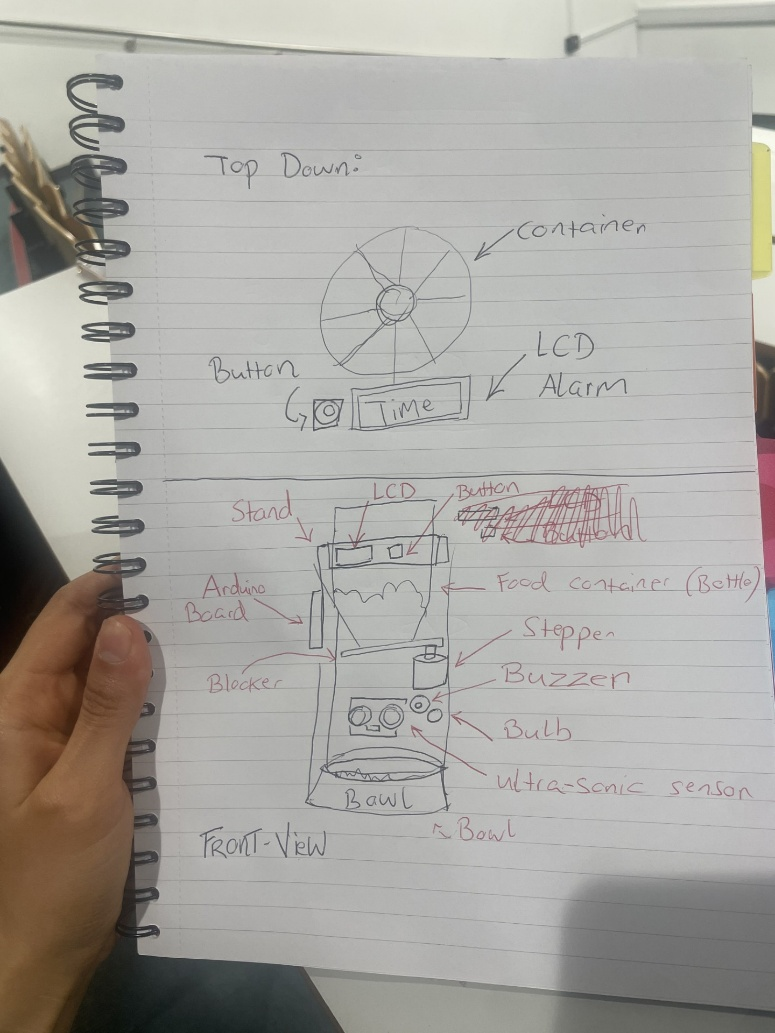 Top Down:
Container
LCD
Alarm
Button
Time
LCD
Button
Stand
Arduino
Board
Food container (Bottle)
Stepper
Blocker
Buzzer
Bulb
ultra-sonic sensor
Bawl
Bowl
FRONT-VIEW